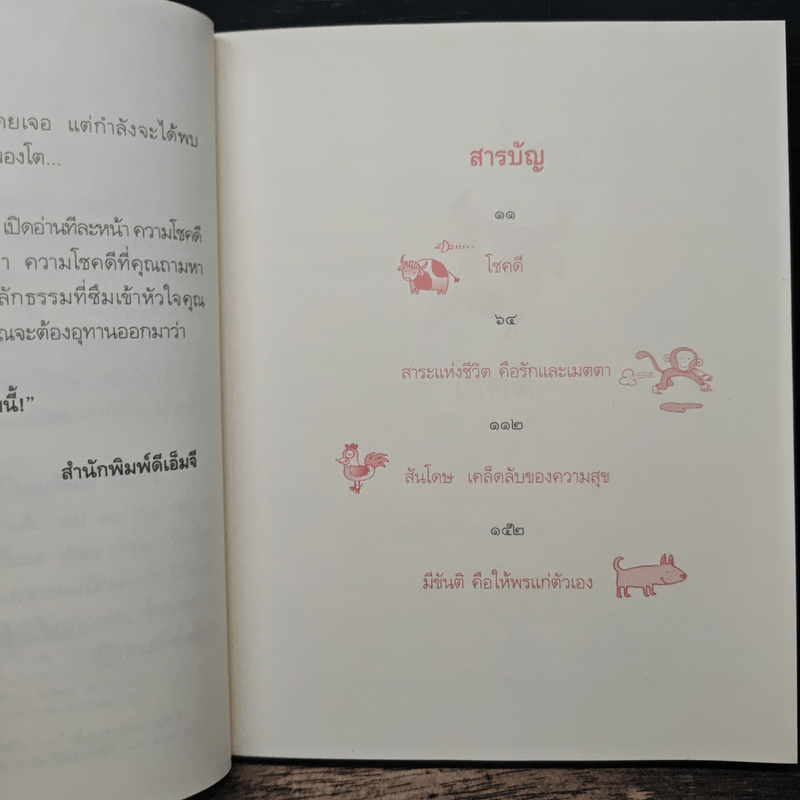 แต่กำลังจะได้พบ
ของโต...
เปิดอ่านทีละหน้า ความโชคดี
ความโชคดีที่คุณถามหา
ลักธรรมที่ซึมเข้าหัวใจคุณ
ณจะต้องอุทานออกมาว่า
นี้!”
สำนักพิมพ์ดีเอ็มจี
สารบัญ
๑๑
โชคดี
๖๔
สาระแห่งชีวิต คือรักและเมตตา
๑๑๒
สันโดษ เคล็ดลับของความสุข
๑๕๒
มีขันติ คือให้พรแก่ตัวเอง